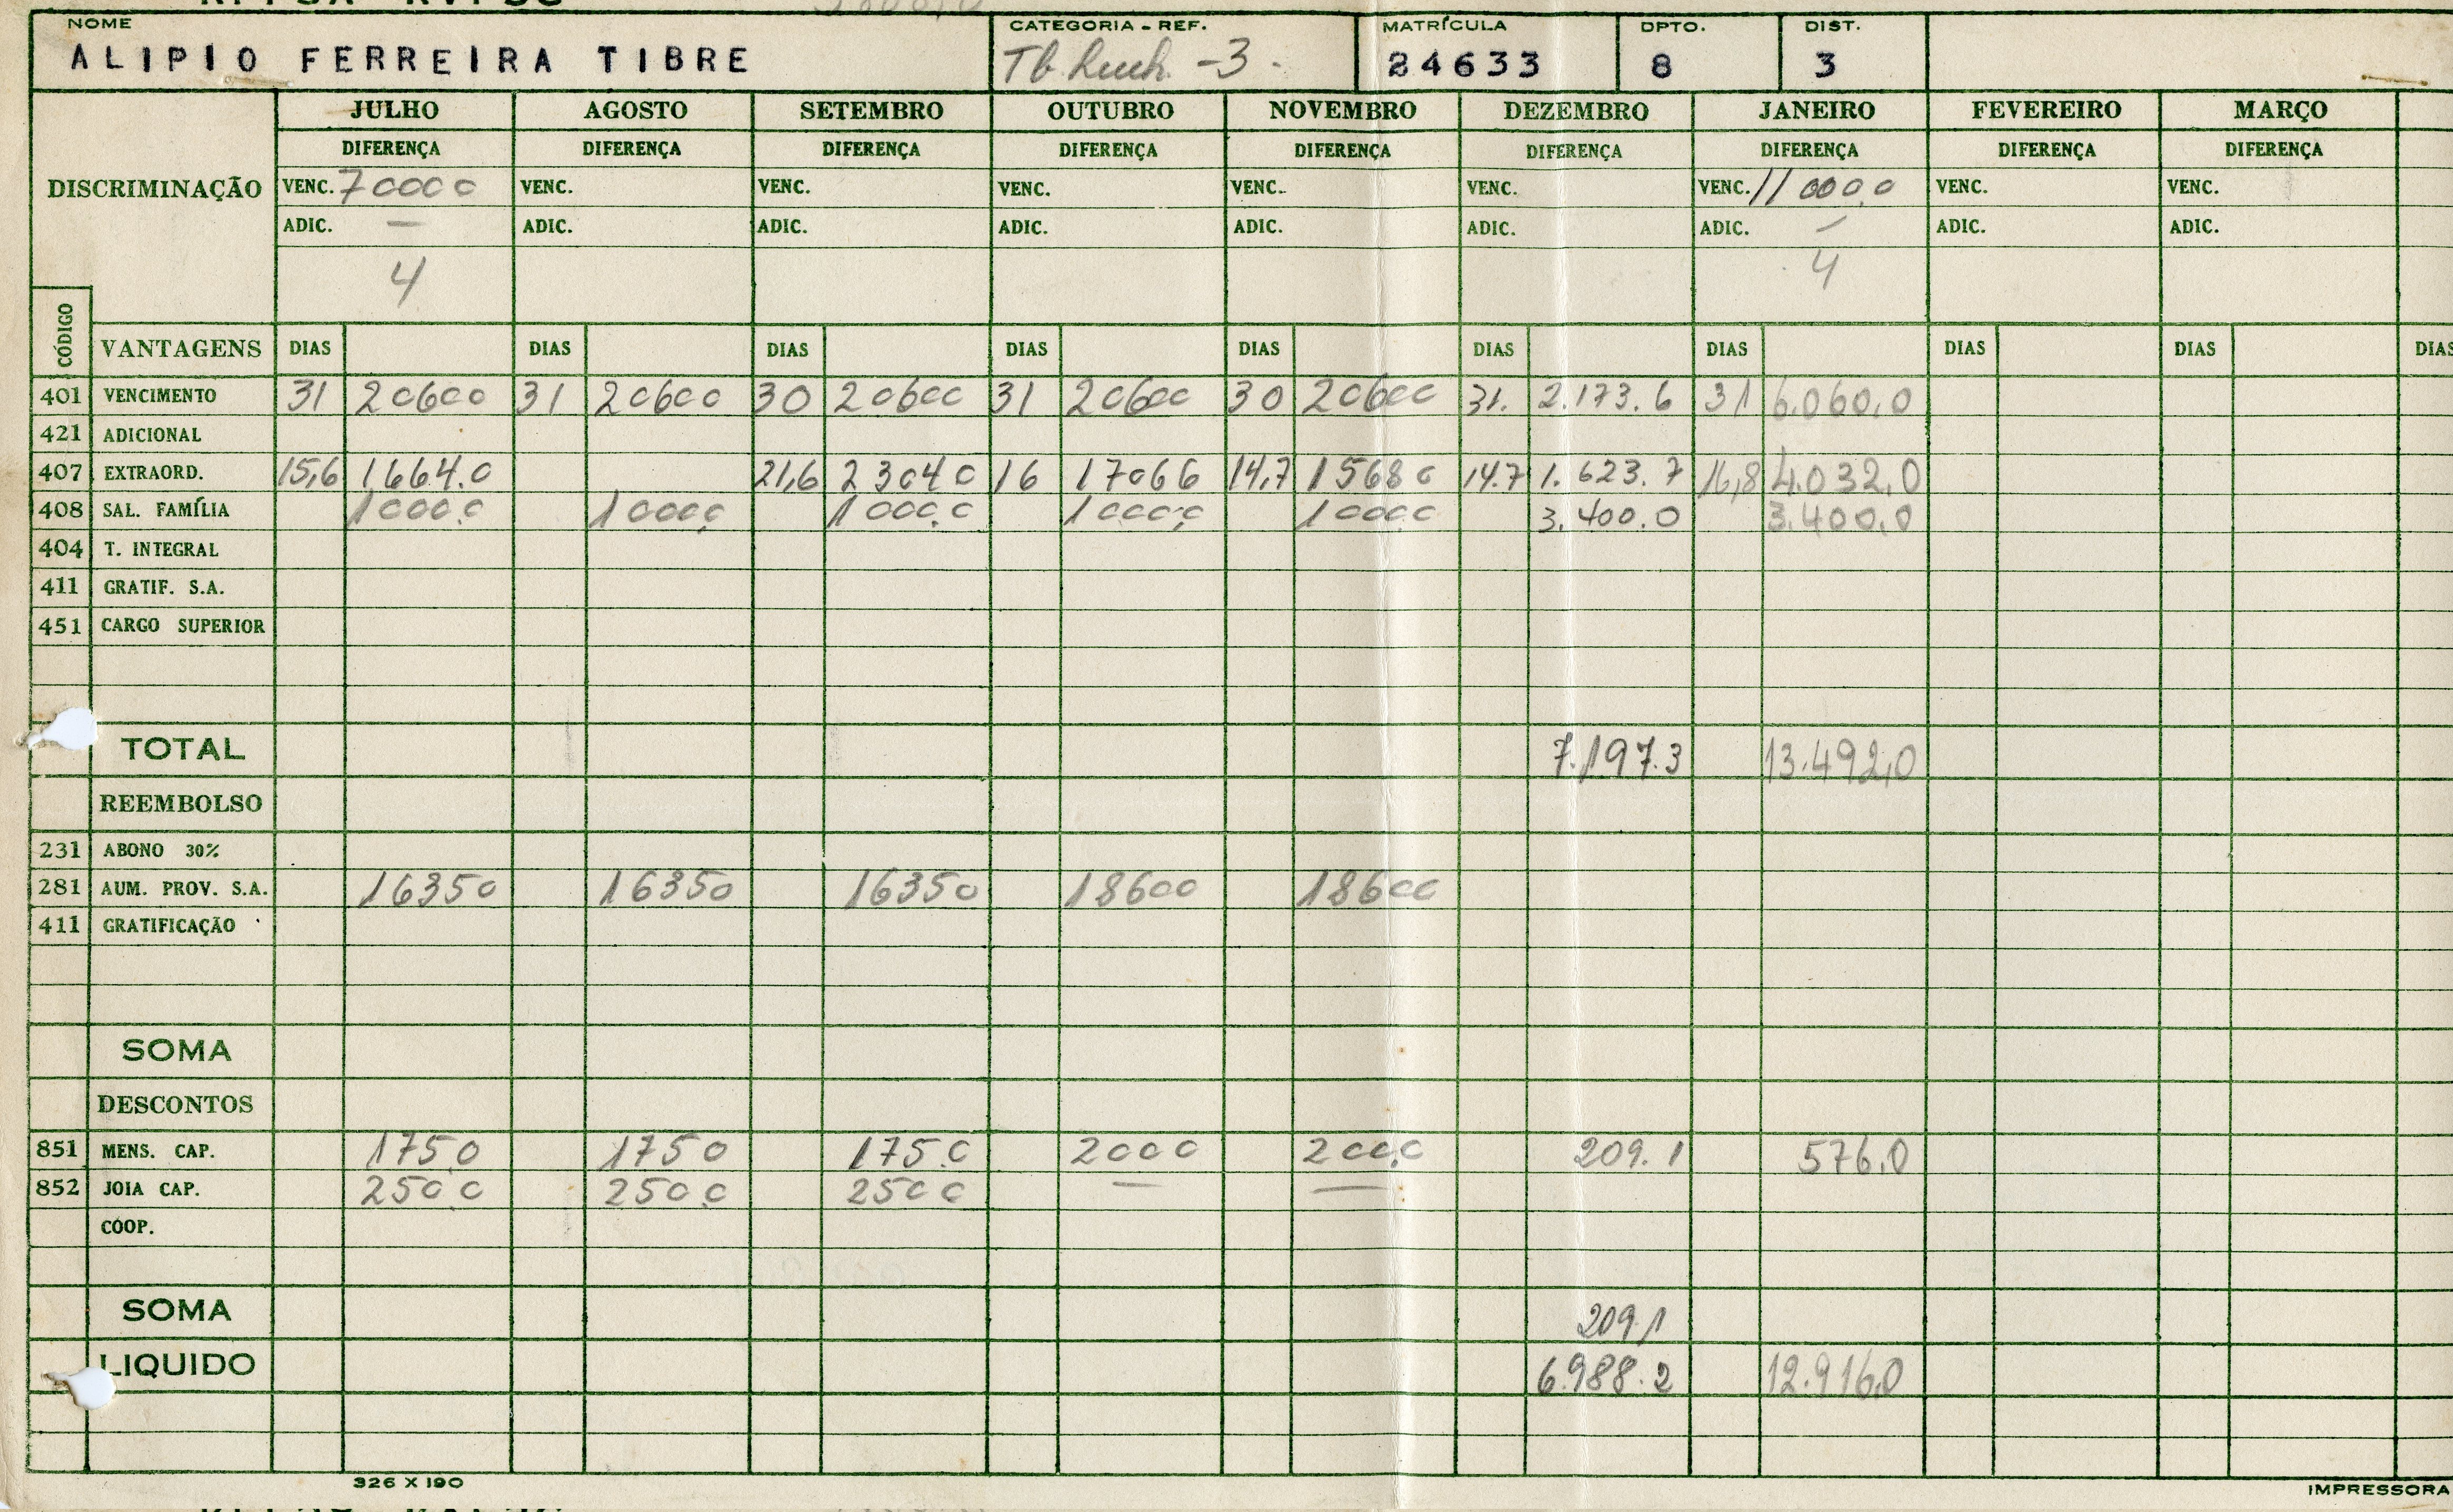 NOME CATEGORIA - REF. MATRÍCULA DPTO. DIST.
ALIPIO FERREIRA TIBRE Tb. -3- 24633 8 3
JULHO AGOSTO SETEMBRO OUTUBRO NOVEMBRO DEZEMBRO JANEIRO FEVEREIRO MARÇO
DIFERENÇA DIFERENÇA DIFERENÇA DIFERENÇA DIFERENÇA DIFERENÇA DIFERENÇA DIFERENÇA DIFERENÇA
DISCRIMINAÇÃO VENC. 70000 VENC. VENC. VENC. VENC. VENC. VENC. 11000,0 VENC. VENC.
ADIC. — ADIC. ADIC. ADIC. ADIC. ADIC. ADIC. — ADIC. ADIC.
4 4
CÓDIGO VANTAGENS DIAS DIAS DIAS DIAS DIAS DIAS DIAS DIAS DIAS DIAS
401 VENCIMENTO 31 20600 31 20600 30 20600 31 20600 30 20600 31. 2.173.6 31 6.060,0
421 ADICIONAL
407 EXTRAORD. 15,6 1664.0 21,6 23040 16 17066 14,7 15680 14.7 1.623.7 16,8 4.032,0
408 SAL. FAMÍLIA 1000.0 1000,0 1000.0 1000,0 1000.0 3.400.0 3.400,0
404 T. INTEGRAL
411 GRATIF. S.A.
451 CARGO SUPERIOR
TOTAL 7.197.3 13.492,0
REEMBOLSO
231 ABONO 30%
281 AUM. PROV. S.A. 16350 16350 16350 18600 18600
411 GRATIFICAÇÃO
SOMA
DESCONTOS
851 MENS. CAP. 175.0 1750 175.0 2000 200.0 209.1 576,0
852 JOIA CAP. 250.0 250.0 2500 — —
COOP.
SOMA 209,1
LIQUIDO 6.988.2 12.916,0
326 X 190 IMPRESSORA